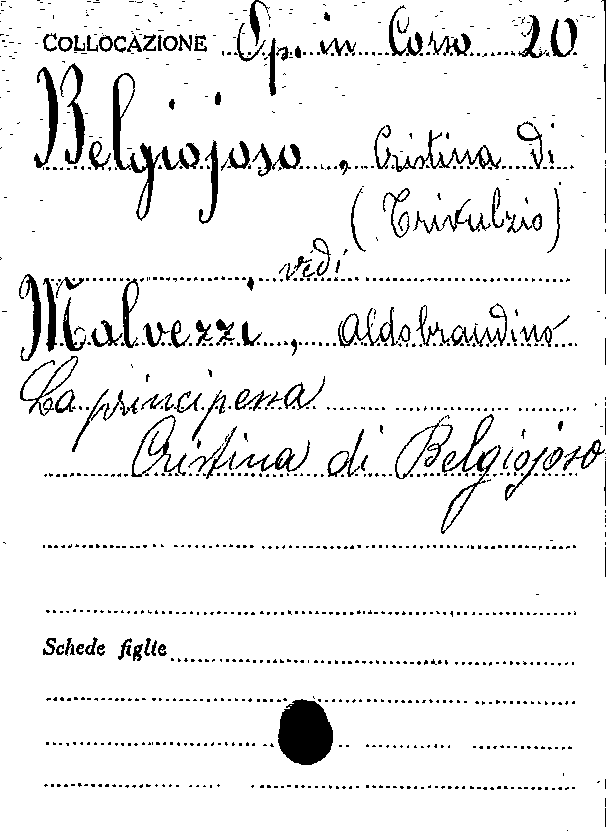 COLLOCAZIONE Op. in Corso 20
Belgiojoso, Cristina di
(Trivulzio)
vedi
Malvezzi, Aldobrandino
La principessa
Cristina di Belgiojoso
Schede figlie